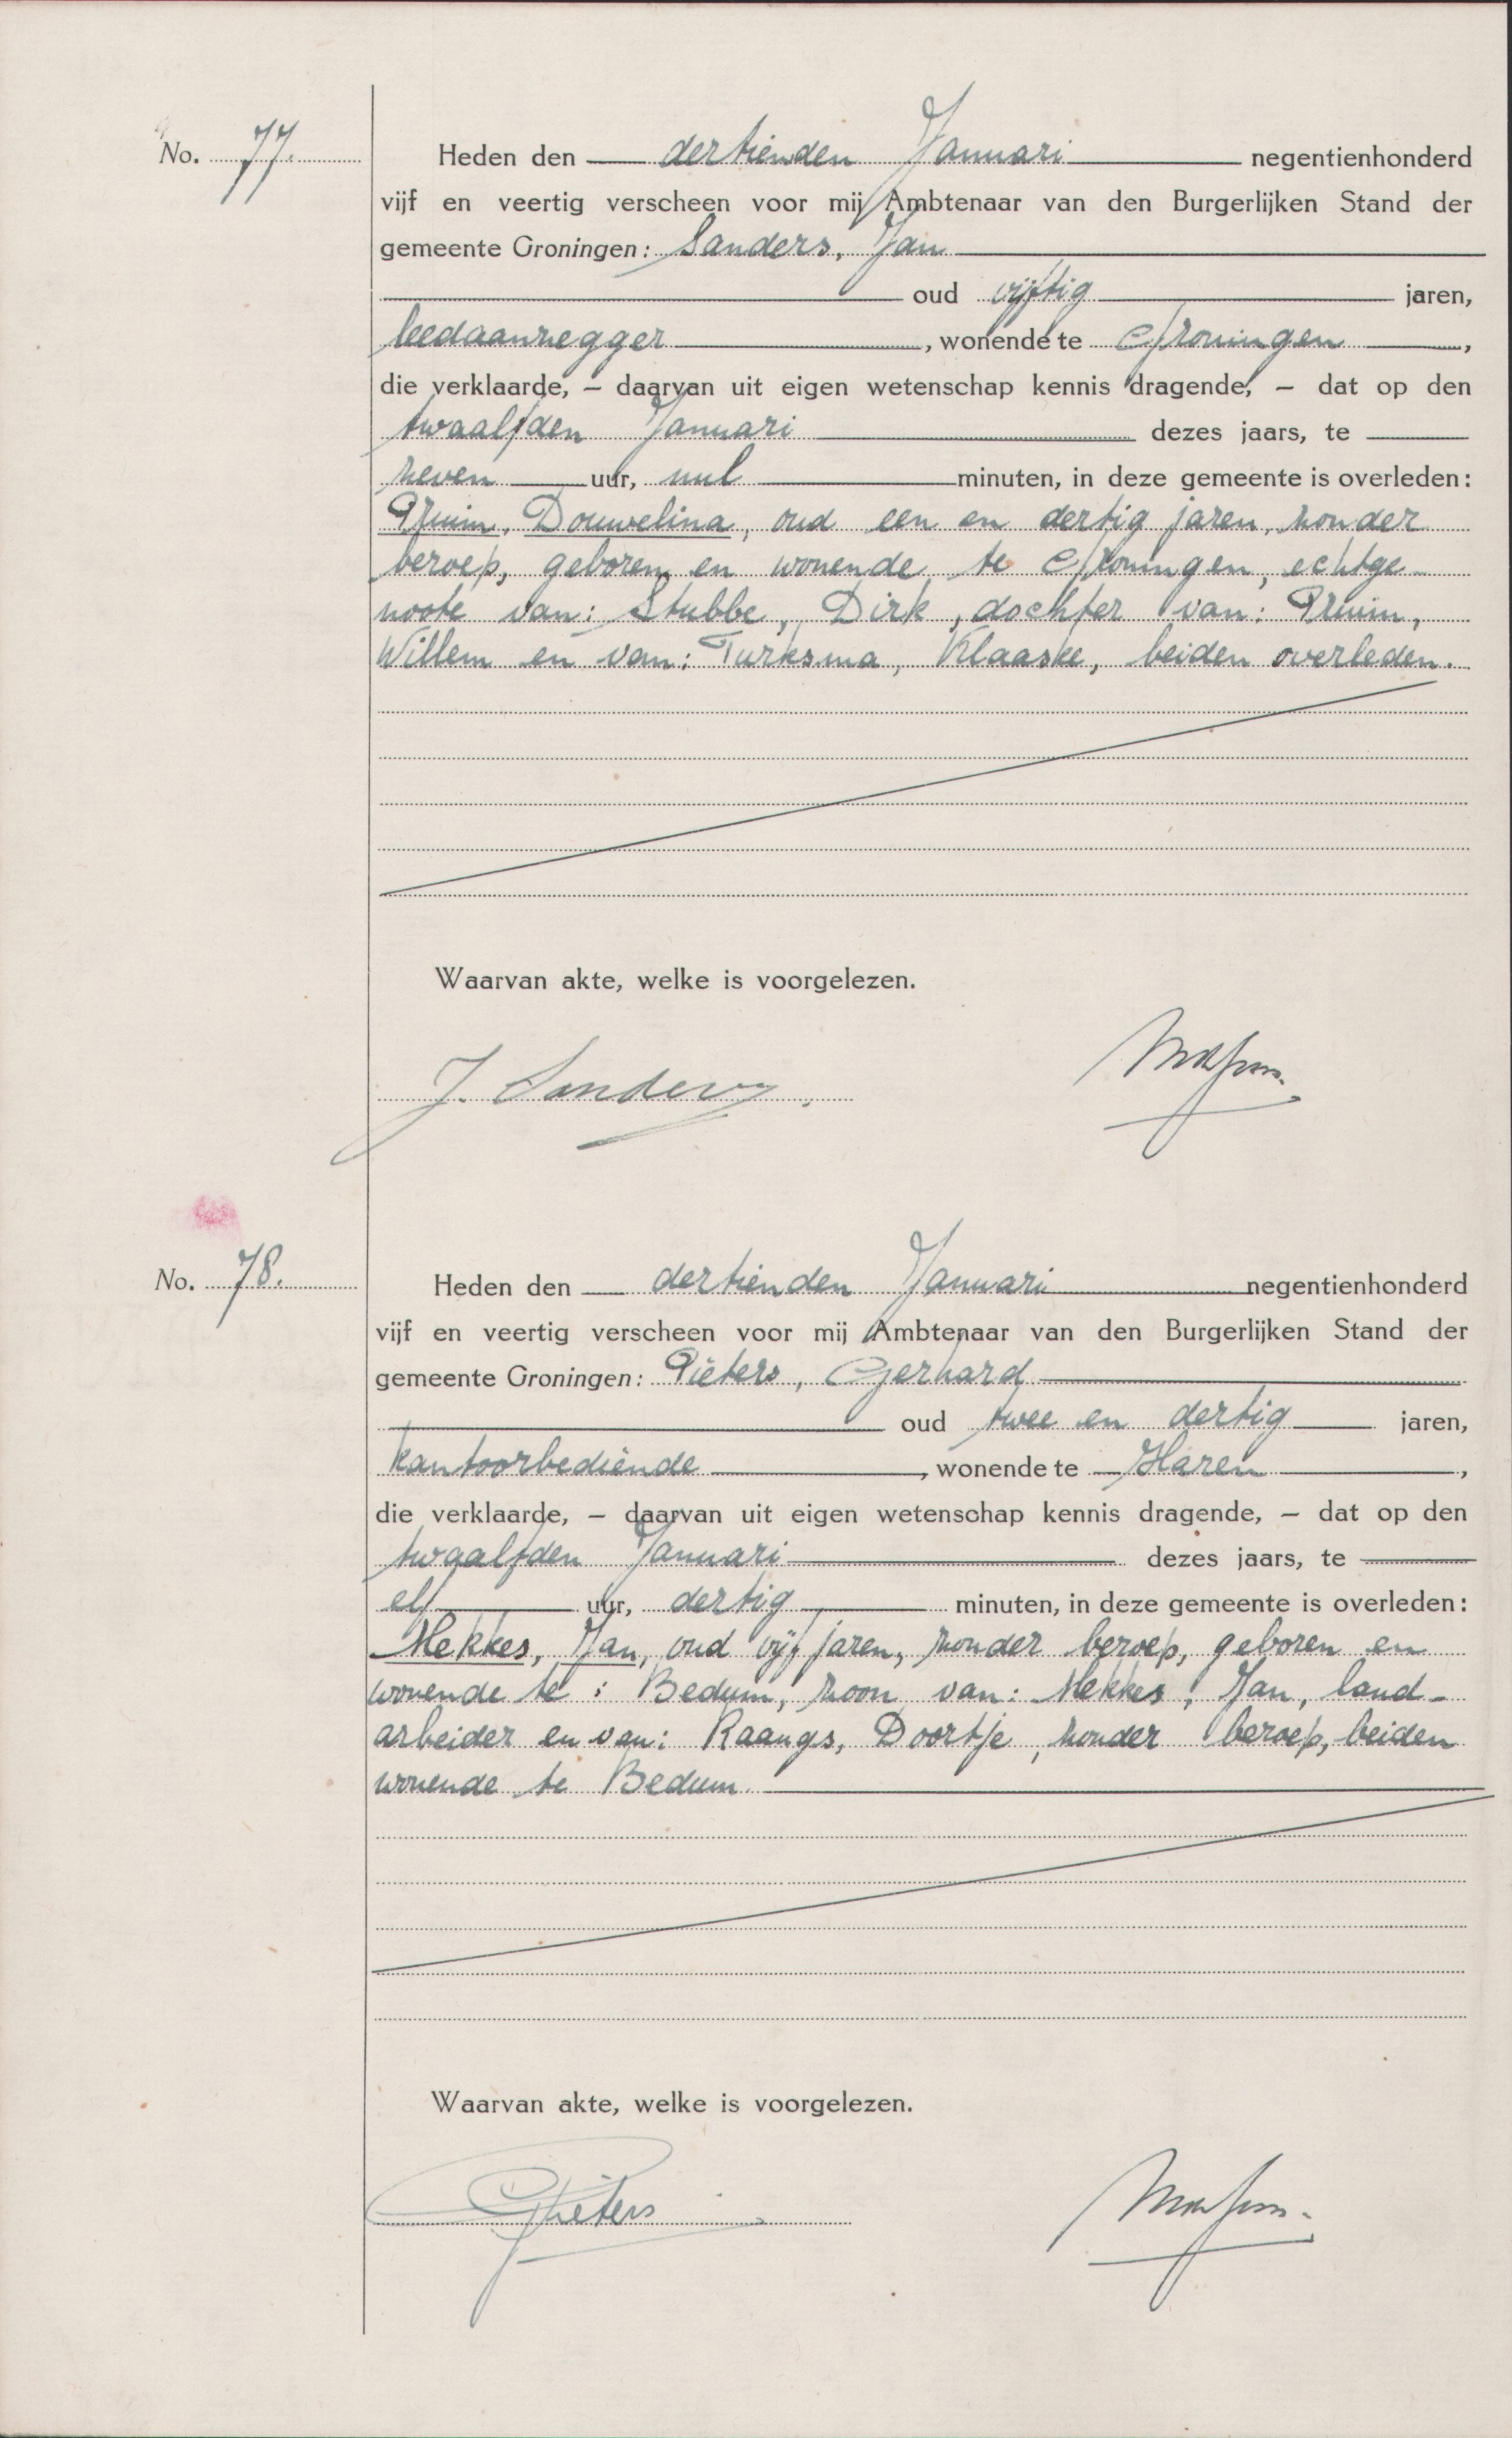 No. 77.
Heden den dertienden Januari negentienhonderd
vijf en veertig verscheen voor mij Ambtenaar van den Burgerlijken Stand der
gemeente Groningen: Sanders, Jan
oud vijftig jaren,
leedaanzegger, wonende te Groningen,
die verklaarde, – daarvan uit eigen wetenschap kennis dragende, – dat op den
twaalfden Januari dezes jaars, te
zeven uur, nul minuten, in deze gemeente is overleden:
Pruim, Douwelina, oud een en dertig jaren, zonder
beroep, geboren en wonende te Groningen, echtge-
noote van: Stubbe, Dirk, dochter van: Pruim,
Willem en van: Turksma, Klaaske, beiden overleden.
Waarvan akte, welke is voorgelezen.
J. Sanders.
No. 78.
Heden den dertienden Januari negentienhonderd
vijf en veertig verscheen voor mij Ambtenaar van den Burgerlijken Stand der
gemeente Groningen: Pieters, Gerhard
oud twee en dertig jaren,
kantoorbediende, wonende te Haren,
die verklaarde, – daarvan uit eigen wetenschap kennis dragende, – dat op den
twaalfden Januari dezes jaars, te
elf uur, dertig minuten, in deze gemeente is overleden:
Mekkes, Jan, oud vijf jaren, zonder beroep, geboren en
wonende te: Bedum, zoon van: Mekkes, Jan, land-
arbeider en van: Raangs, Doortje, zonder beroep, beiden
wonende te Bedum.
Waarvan akte, welke is voorgelezen.
GPieters